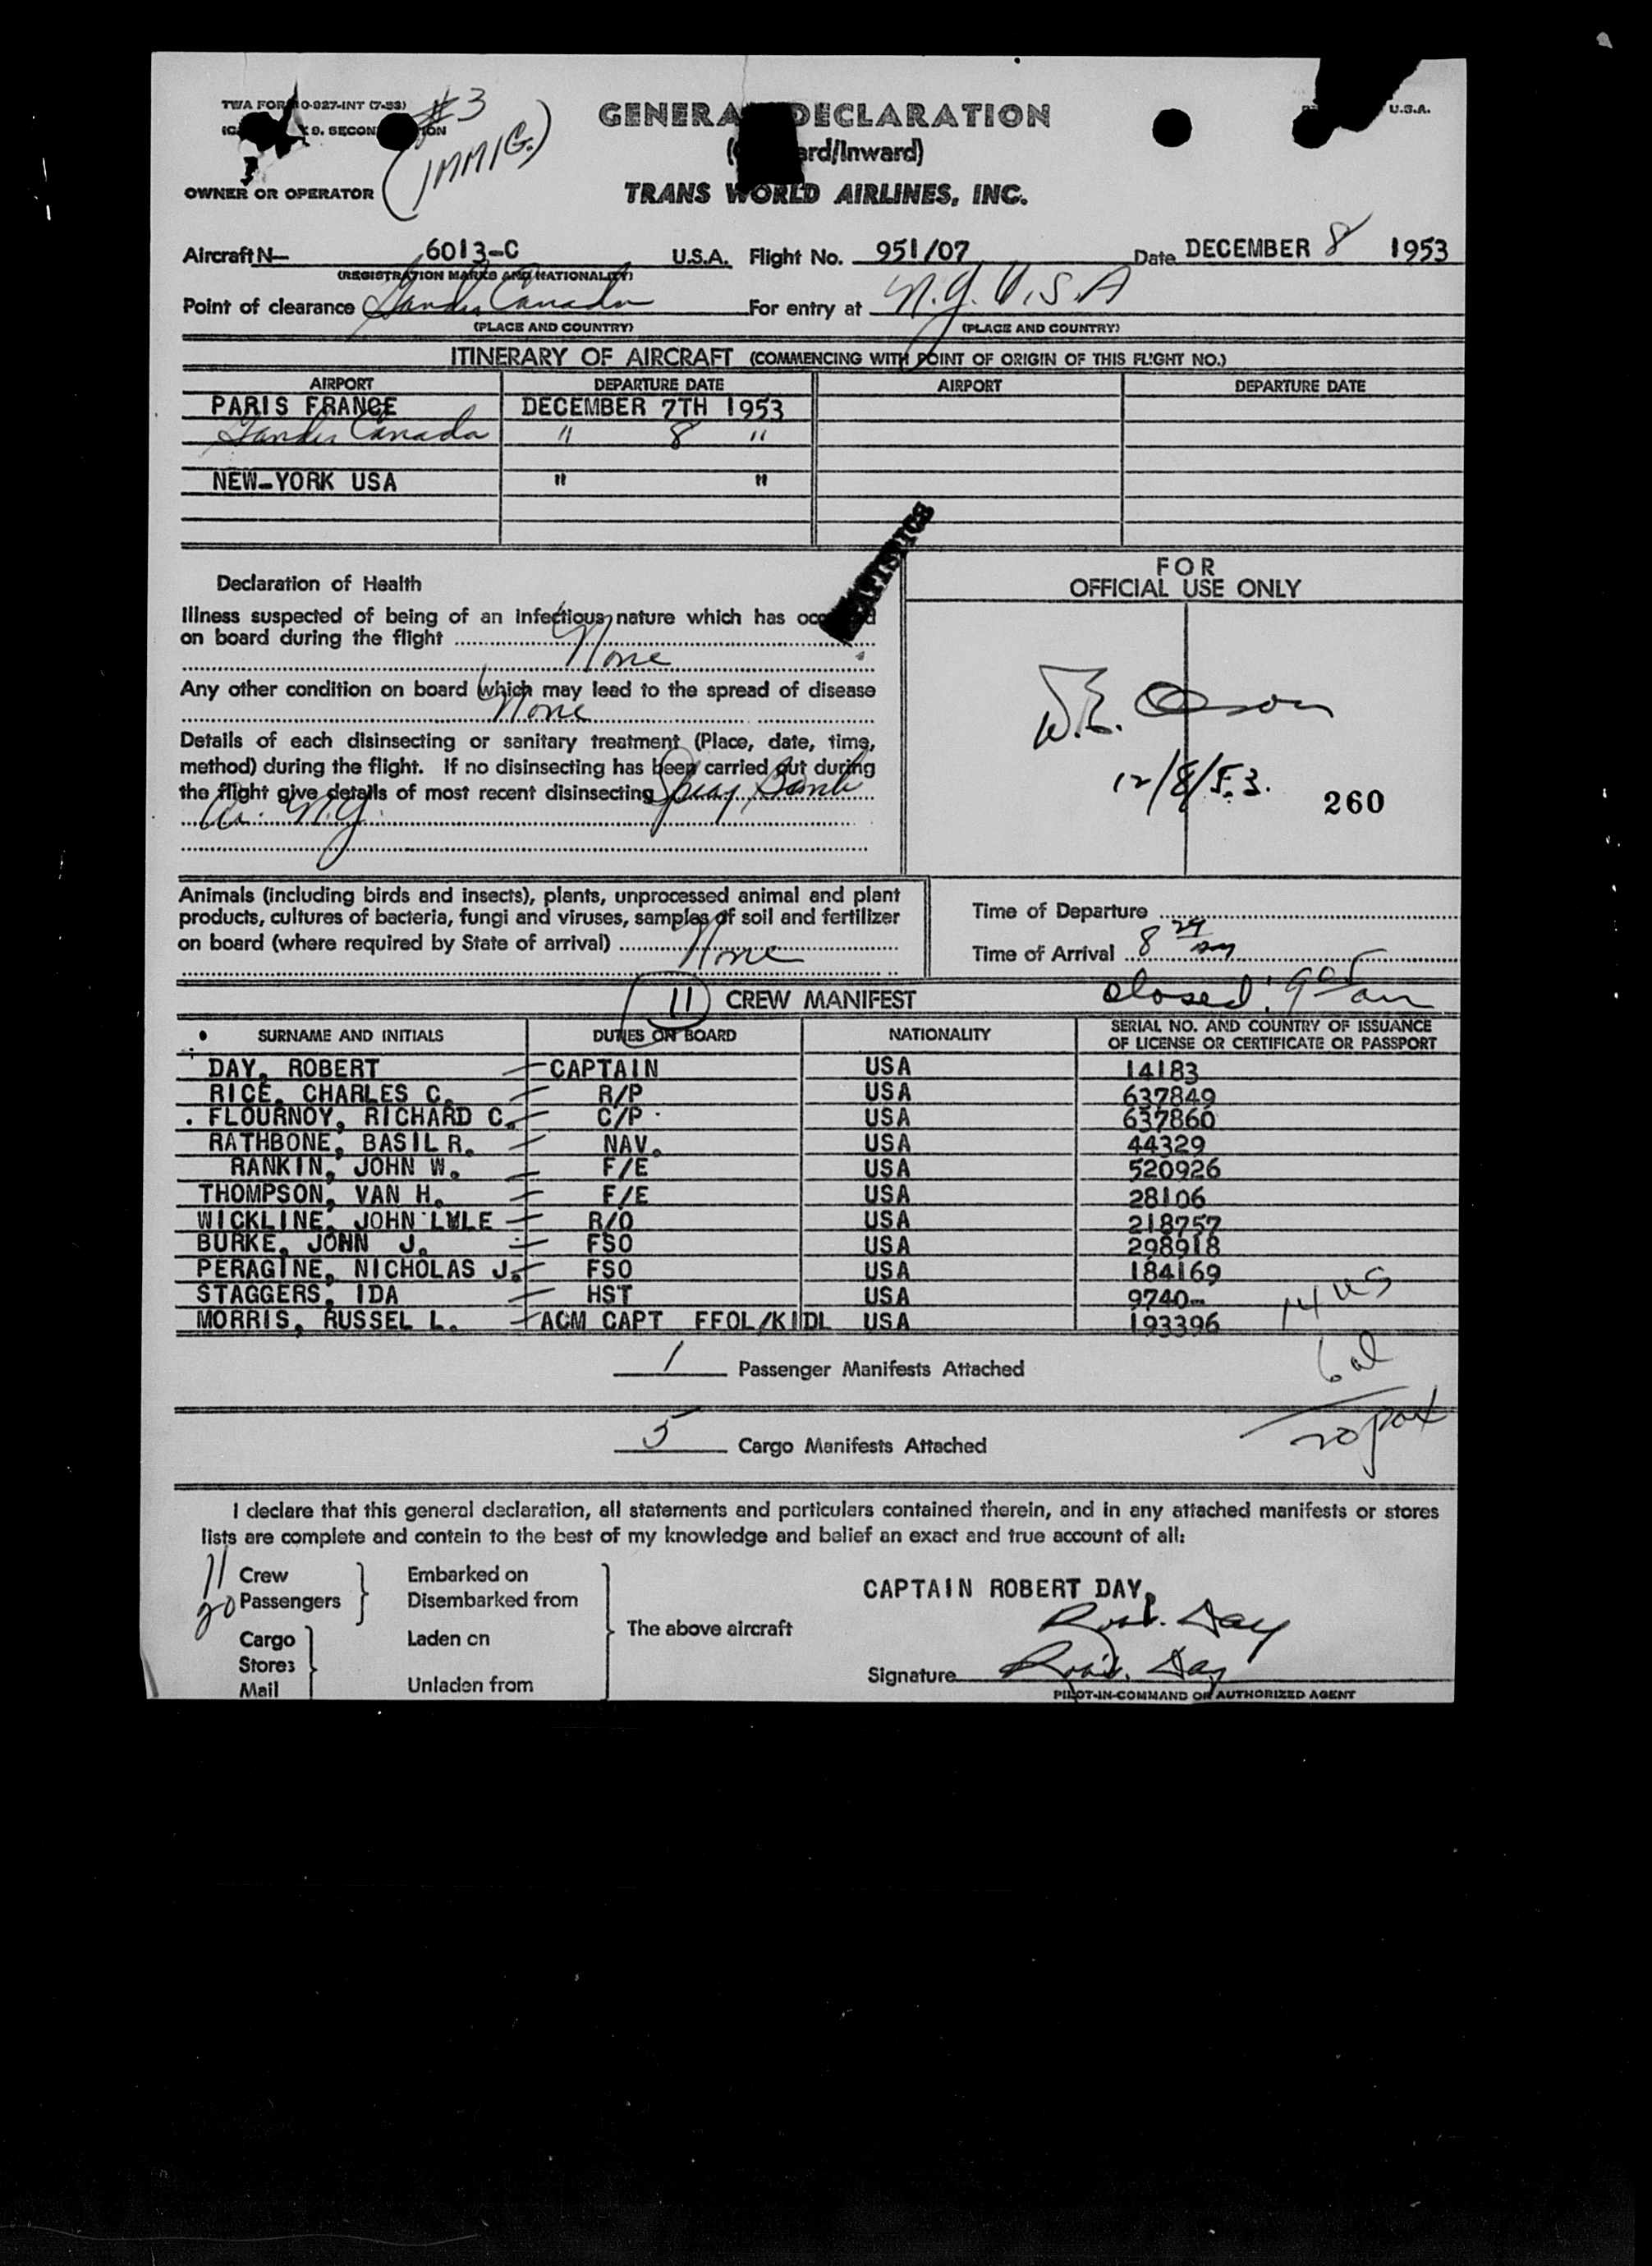 TWA FORM O-927-INT (7-53) #3
(IMMIG.)
U.S.A.
GENERAL DECLARATION
ard/Inward)
OWNER OR OPERATOR TRANS WORLD AIRLINES, INC.
Aircraft N— 6013-C U.S.A. Flight No. 951/07 Date DECEMBER 8 1953
(REGISTRATION MARKS AND NATIONALITY)
Point of clearance Gander Canada For entry at N.Y. U.S.A
(PLACE AND COUNTRY) (PLACE AND COUNTRY)
ITINERARY OF AIRCRAFT (COMMENCING WITH POINT OF ORIGIN OF THIS FLIGHT NO.)
AIRPORT DEPARTURE DATE AIRPORT DEPARTURE DATE
PARIS FRANCE DECEMBER 7TH 1953
Gander Canada " 8 "
NEW-YORK USA " "
Declaration of Health
Illness suspected of being of an infectious nature which has
on board during the flight
None
Any other condition on board which may lead to the spread of disease
None
Details of each disinsecting or sanitary treatment (Place, date, time,
method) during the flight. If no disinsecting has been carried out during
the flight give details of most recent disinsecting Spray Bomb
N.Y.
FOR
OFFICIAL USE ONLY
12/8/53.
260
Animals (including birds and insects), plants, unprocessed animal and plant
products, cultures of bacteria, fungi and viruses, samples of soil and fertilizer
on board (where required by State of arrival) None
Time of Departure
Time of Arrival 8
11 CREW MANIFEST closed 905 am
SURNAME AND INITIALS DUTIES ON BOARD NATIONALITY SERIAL NO. AND COUNTRY OF ISSUANCE
OF LICENSE OR CERTIFICATE OR PASSPORT
DAY, ROBERT CAPTAIN USA 14183
RICE, CHARLES C. R/P USA 637849
FLOURNOY, RICHARD C. C/P USA 637860
RATHBONE, BASIL R. NAV. USA 44329
RANKIN, JOHN W. F/E USA 520926
THOMPSON, VAN H. F/E USA 28106
WICKLINE, JOHN LYLE R/O USA 218757
BURKE, JOHN J. FSO USA 298918
PERAGINE, NICHOLAS J. FSO USA 184169
STAGGERS, IDA HST USA 9740-
MORRIS, RUSSEL L. ACM CAPT FFOL/KIDL USA 193396
14 US
6 al
20 pax
1 Passenger Manifests Attached
5 Cargo Manifests Attached
I declare that this general declaration, all statements and particulars contained therein, and in any attached manifests or stores
lists are complete and contain to the best of my knowledge and belief an exact and true account of all:
11 Crew Embarked on
20 Passengers Disembarked from
Cargo Laden on
Stores
Mail Unladen from
The above aircraft
CAPTAIN ROBERT DAY,
Robt. Day
Signature Robt. Day
PILOT-IN-COMMAND OR AUTHORIZED AGENT